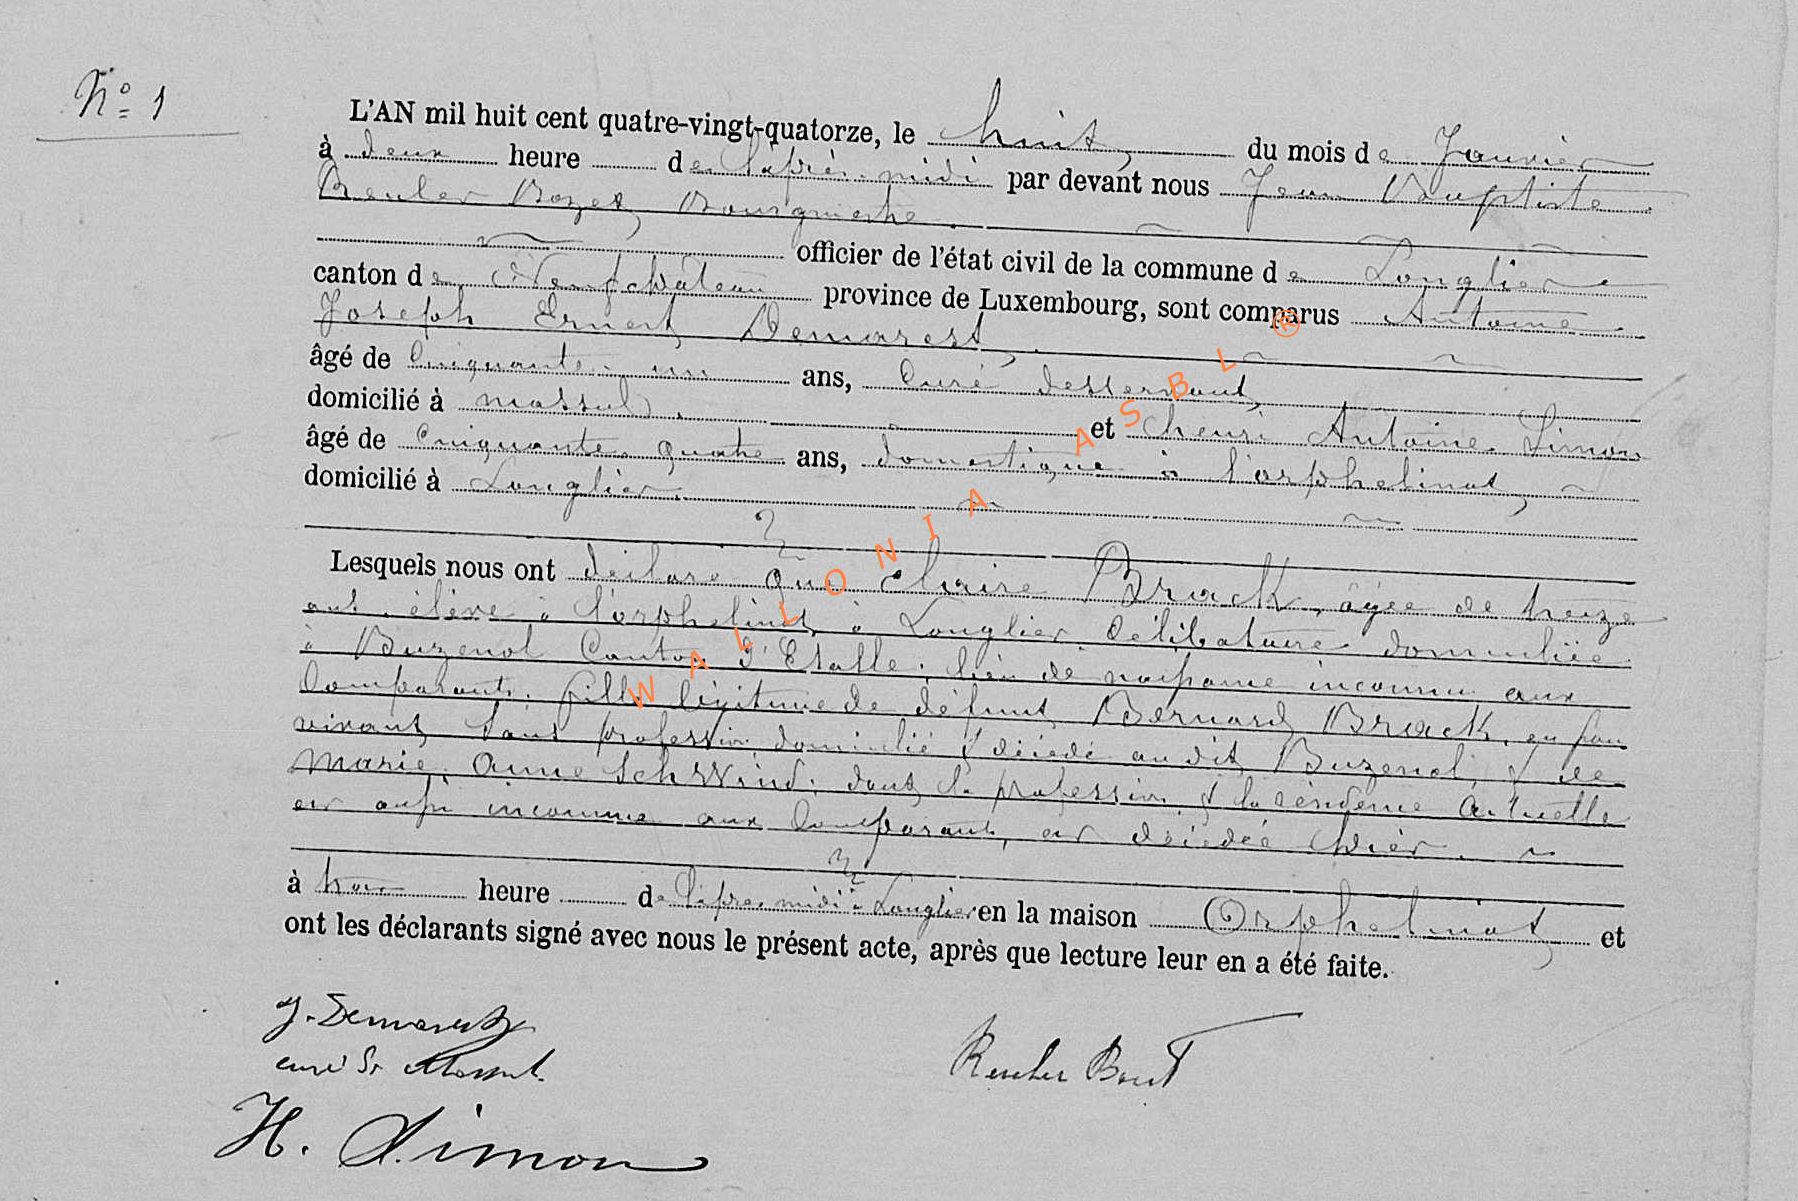 N° 1
L'AN mil huit cent quatre-vingt-quatorze, le huit, du mois de Janvier
à deux heure de l'après-midi par devant nous Jean Baptiste
Reuler Bozet, Bourgmestre
officier de l'état civil de la commune de Longlier
canton de Neufchâteau province de Luxembourg, sont comparus Antoine
Joseph Ernest Demarest,
âgé de Cinquante-un ans, Curé desservant,
domicilié à Massul. et henri Antoine Simon
âgé de Cinquante quatre ans, domestique à l'orphelinat,
domicilié à Longlier.
Lesquels nous ont déclaré que Claire Brack, âgée de treize
ans, élève à l'orphelinat à Longlier Célibataire domiciliée
à Buzenol Canton d'Etalle, lieu de naissance inconnu aux
Comparants, fille légitime de défunt Bernard Brack, en son
vivant sans profession domicilié & décédé au dit Buzenol, & de
Marie Anne Schwind, dont la profession & la résidence actuelle
est aussi inconnue aux Comparants, est décédée hier.
à trois heure de l'après midi à Longlier en la maison Orphelinat, et
ont les déclarants signé avec nous le présent acte, après que lecture leur en a été faite.
J. Demarest
curé de Massul.
H. Simon
WALLONIA ASBL ®